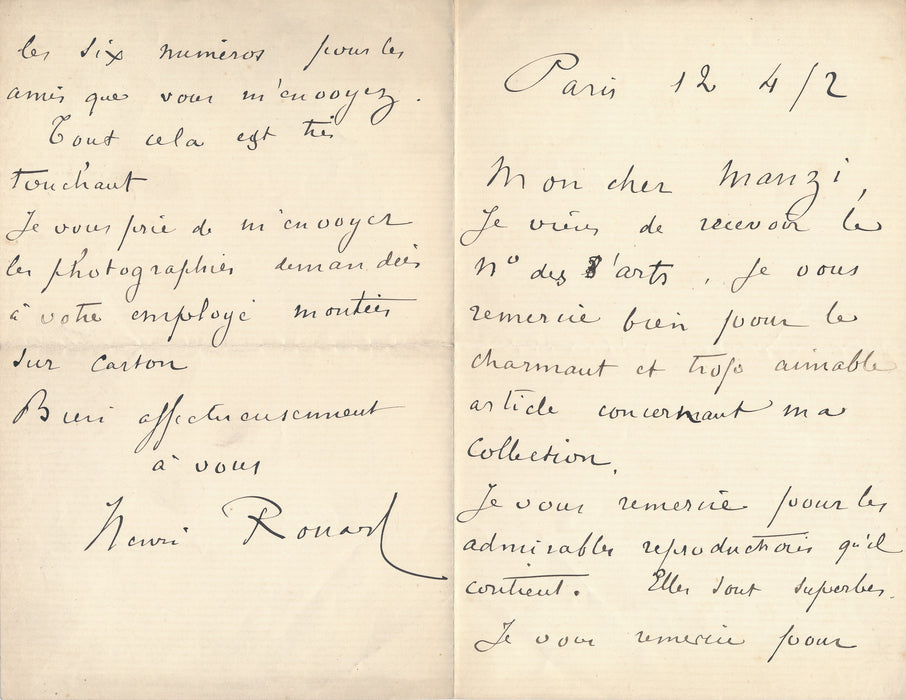 Paris 12 4/2
Mon cher Manzi,
Je viens de recevoir le
N° des arts. Je vous
remercie bien pour le
charmant et trop aimable
article concernant ma
Collection.
Je vous remercie pour les
admirables reproductions qu'il
contient. Elles sont superbes.
Je vous remercie pour
les six numéros pour les
amis que vous m'envoyez.
Tout cela est très
touchant
Je vous prie de m'envoyer
les photographies demandées
à votre employé montées
sur carton
Bien affectueusement
à vous
Henri Rouart